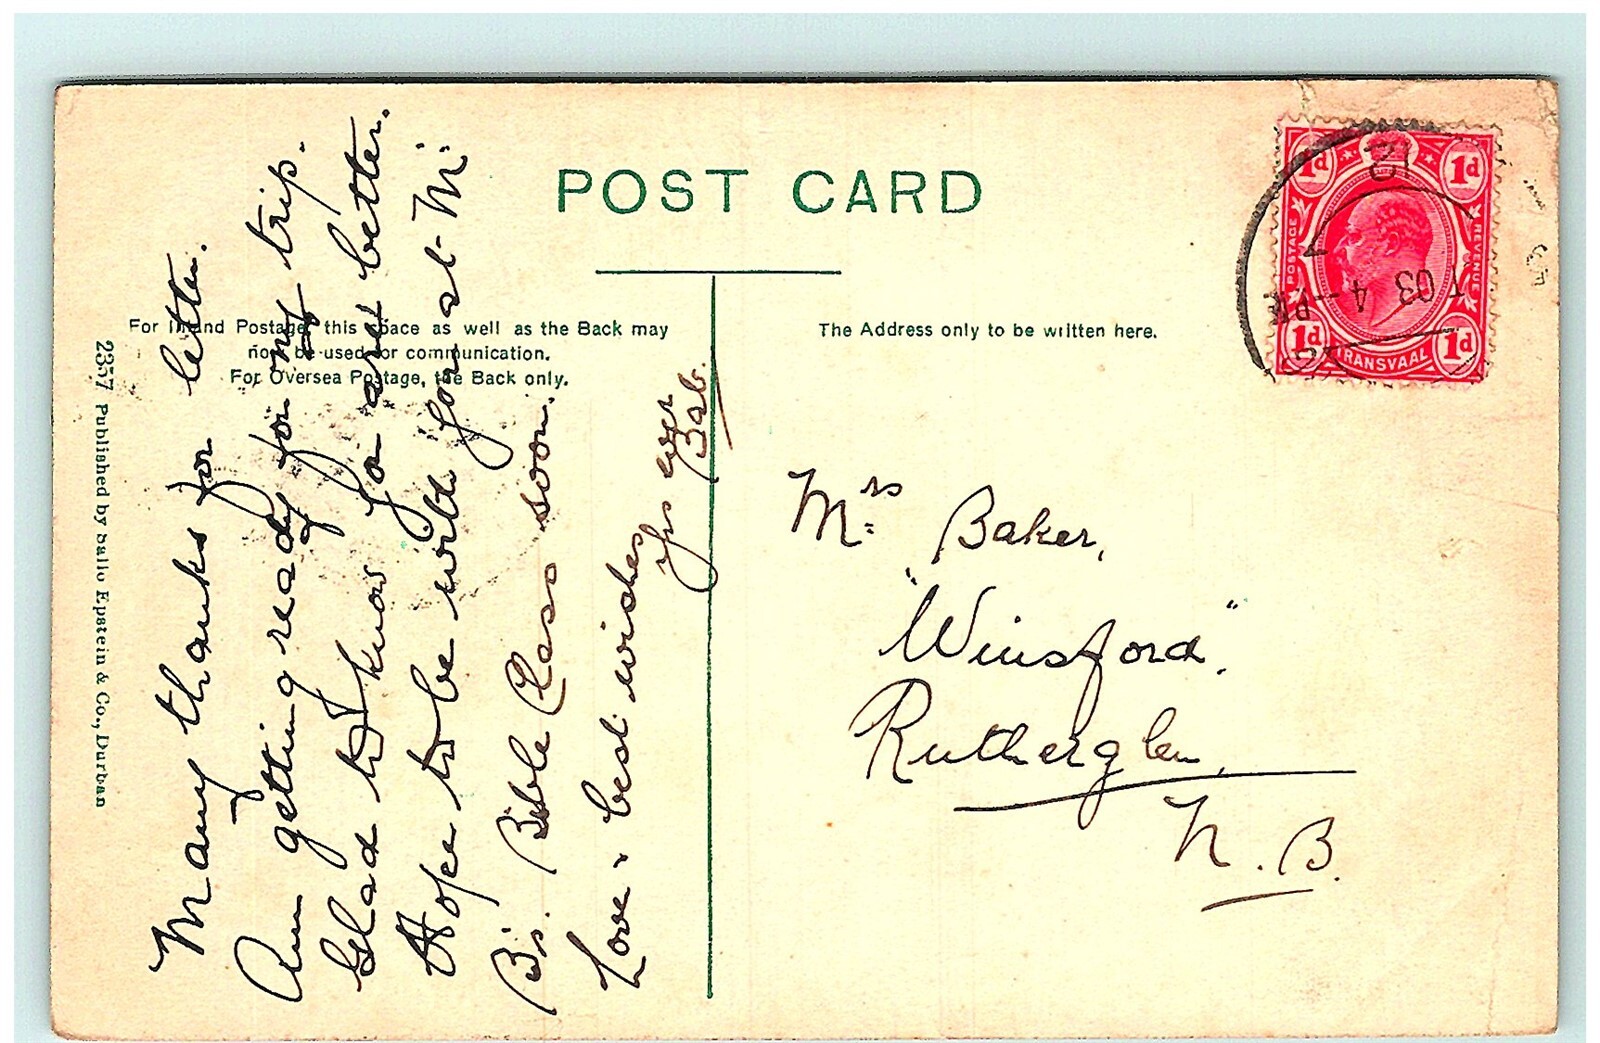 POST CARD
For Inland Postage, this space as well as the Back may
now be used for communication.
For Oversea Postage, the Back only.
The Address only to be written here.
2357 Published by Sallo Epstein & Co., Durban
Many thanks for letter.
Am getting ready for my trip.
Glad to know you are better.
Hope to be with you at M:
B's. Bible Class soon.
Love & best wishes
Yrs ever
Bab.
Mrs Baker,
"Winsford".
Rutherglen,
N.B.
1d 1d
POSTAGE REVENUE
1d 1d
TRANSVAAL
12
4-PM
03